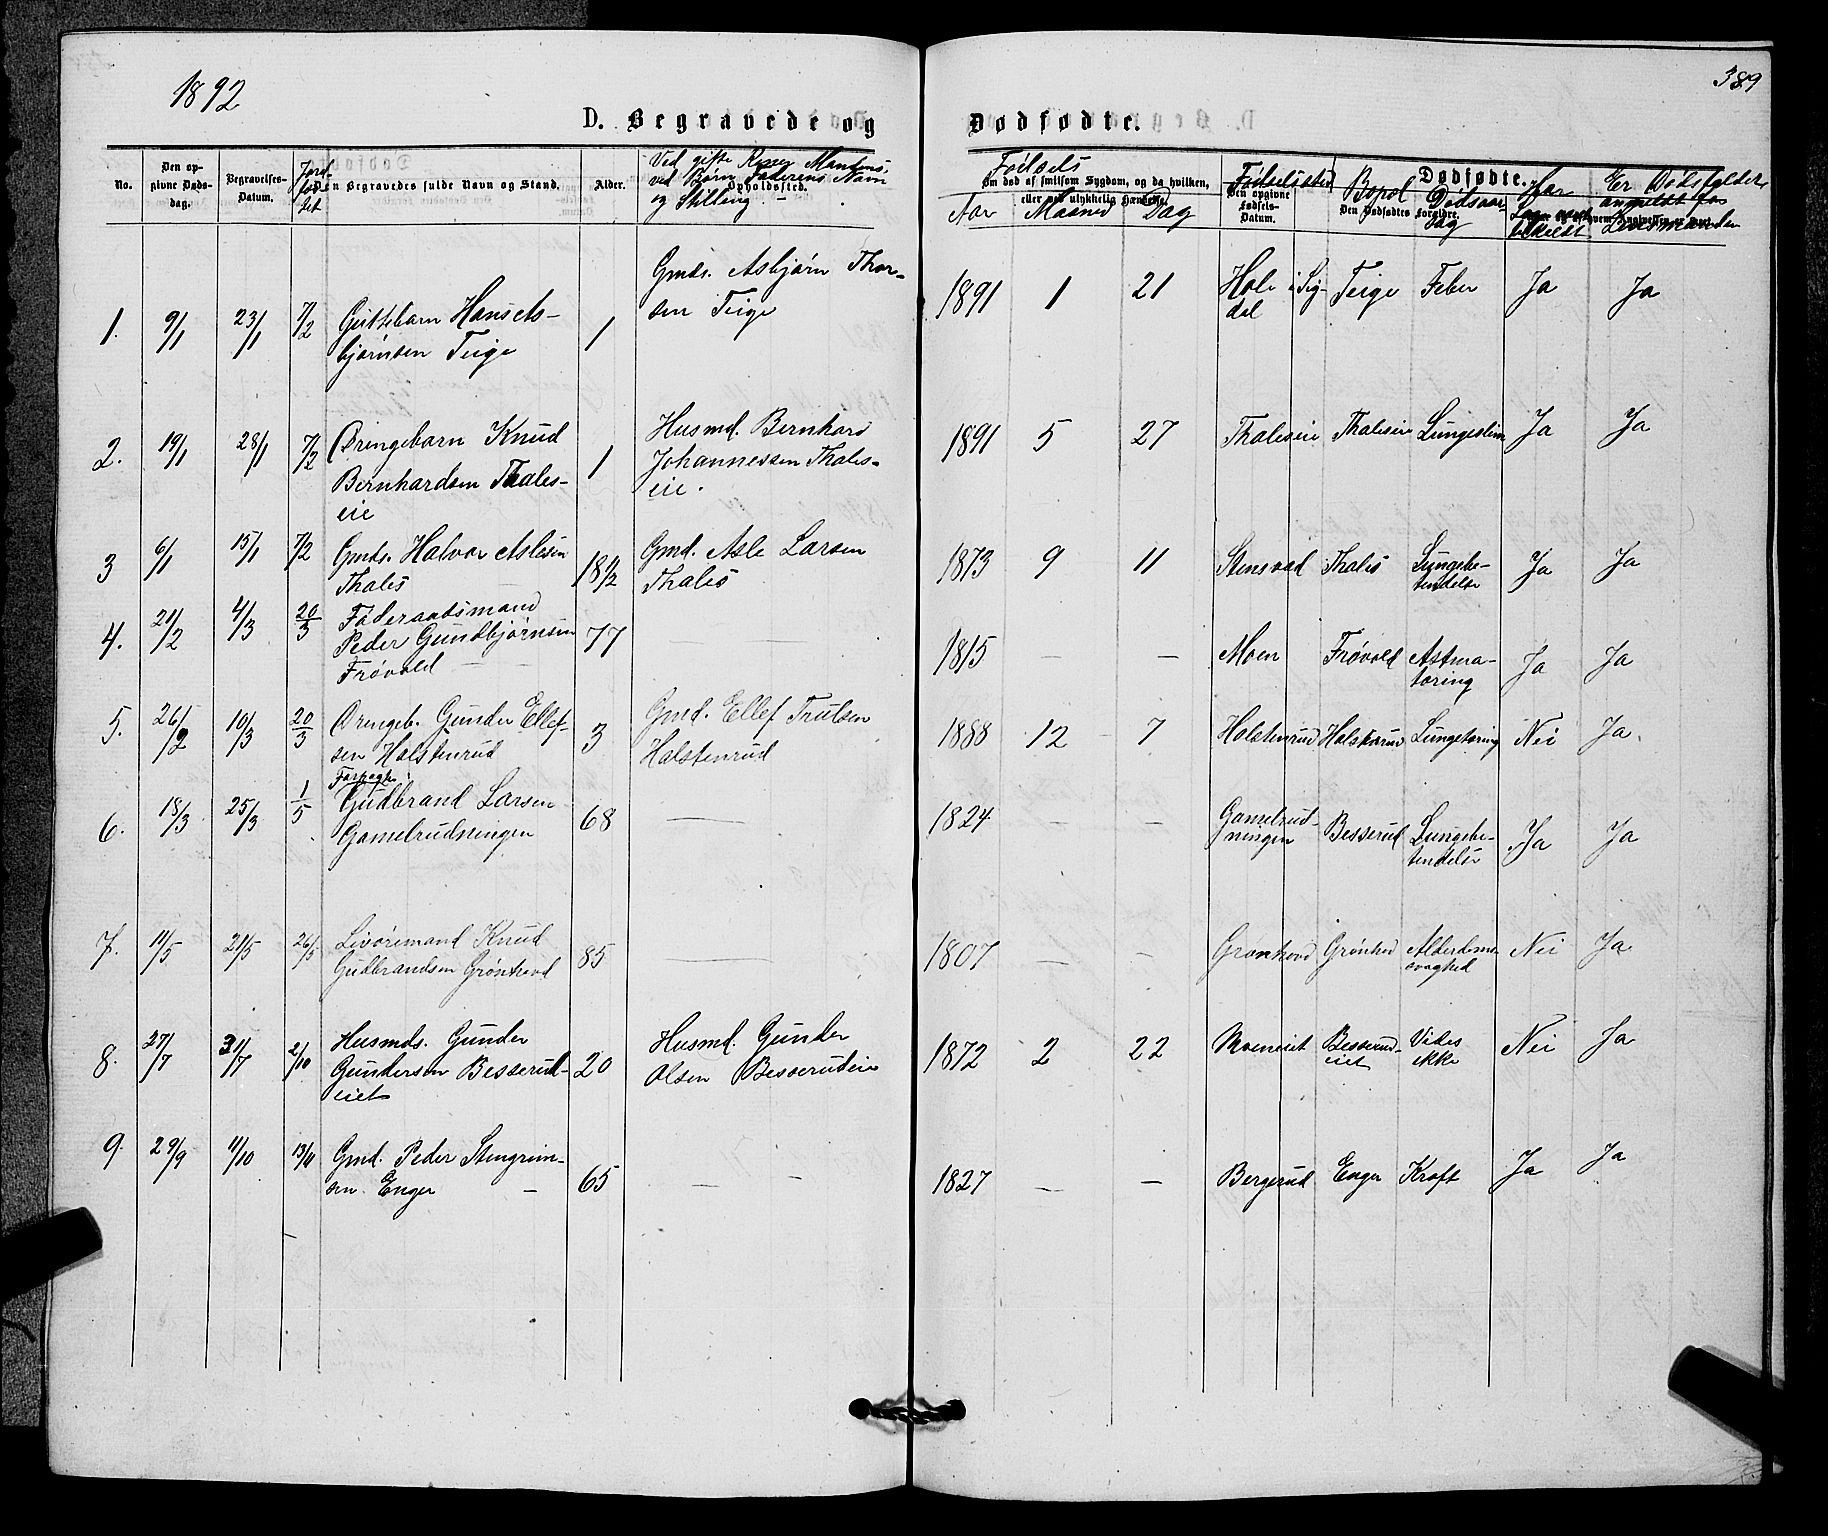 1892
389
D. Begravede og Dødfødte.
No.
Den op-
givne Døds-
dag.
Begravelses-
Datum.
Jord-
Den Begravedes fulde Navn og Stand.
Alder.
Ved gifte Manden's,
ved Børn Faderens Navn
og Stilling.
Opholdssted.
Fødsels
Om død af smitsom Sygdom, og da hvilken,
eller ved ulykkelig Hændelse.
Aar Maaned Dag
Fødselssted
Den opgivne
Fødsels-
Datum.
Bopæl
Dødfødte.
Den Dødfødtes Forældre.
Dødsaar-
sag
Har
Er Dødsfaldet
anmeldt for
Lensmanden
1. 9/1 23/1 7/2 Guttebarn Hans As-
bjørnsen Teige 1 Gmds. Asbjørn Thor-
sen Teige 1891 1 21 Hole i Sig-
dal Teige Feber Ja Ja
2. 19/1 28/1 7/2 Drengebarn Knud
Bernhardsen Thales-
eie 1 Husmd. Bernhard
Johannessen Thales-
eie. 1891 5 27 Thaleseie Thaleseie Lungeslim Ja Ja
3 6/1 15/1 7/2 Gmds. Halvor Aslesen
Thales 18 1/2 Gmd. Asle Larsen
Thales 1873 9 11 Stensrud Thales Lungebe-
tendelse Ja Ja
4. 21/2 4/3 20/3 Føderaadsmand
Peder Gundbjørnsen
Frøvold 77 — — 1815 — — Moen Frøvold Astma-
tæring Ja Ja
5. 26/2 10/3 20/3 Drengeb. Gunder Ellef-
sen Holstenrud 3 Gmd. Ellef Trulsen
Holstenrud 1888 12 7 Holstenrud Lungetæring Nei Ja.
6. 18/3 25/3 1/5 Gudbrand Larsen
Gamelrudningen 68 — 1824 — — Gamelrud-
ningen Besserud Lungebe-
tendelse Ja Ja
7. 11/5 21/5 26/5 Livøremand Knud
Gudbrandsen Grønhovd 85 — 1807 — — Grønhovd Grønhod Alderdoms-
svaghed Nei Ja
8. 27/7 31/7 2/10 Husmds. Gunder
Gundersen Besserud-
eiet 20 Husmd. Gunder
Olsen Besserudeie 1872 2 22 Moeneiet Besserud-
eiet Vides
ikke Nei Ja
9. 29/9 11/10 13/11 Gmd. Peder Stengrim-
sen Enger — 65 — — 1827 — — Bergerud Enger Kræft Ja Ja